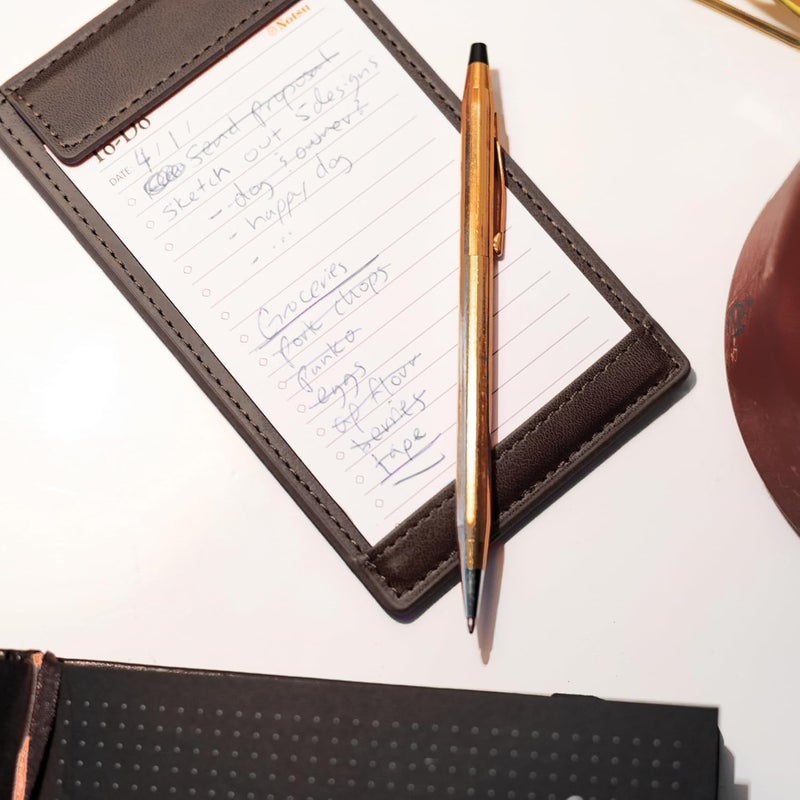 Notsu
To-Do
DATE: 4/1/
Send proposal
sketch out 5 designs
- dog 
- happy dog
- ...
Groceries
Pork chops
Panko
eggs
AP flour
berries
tape